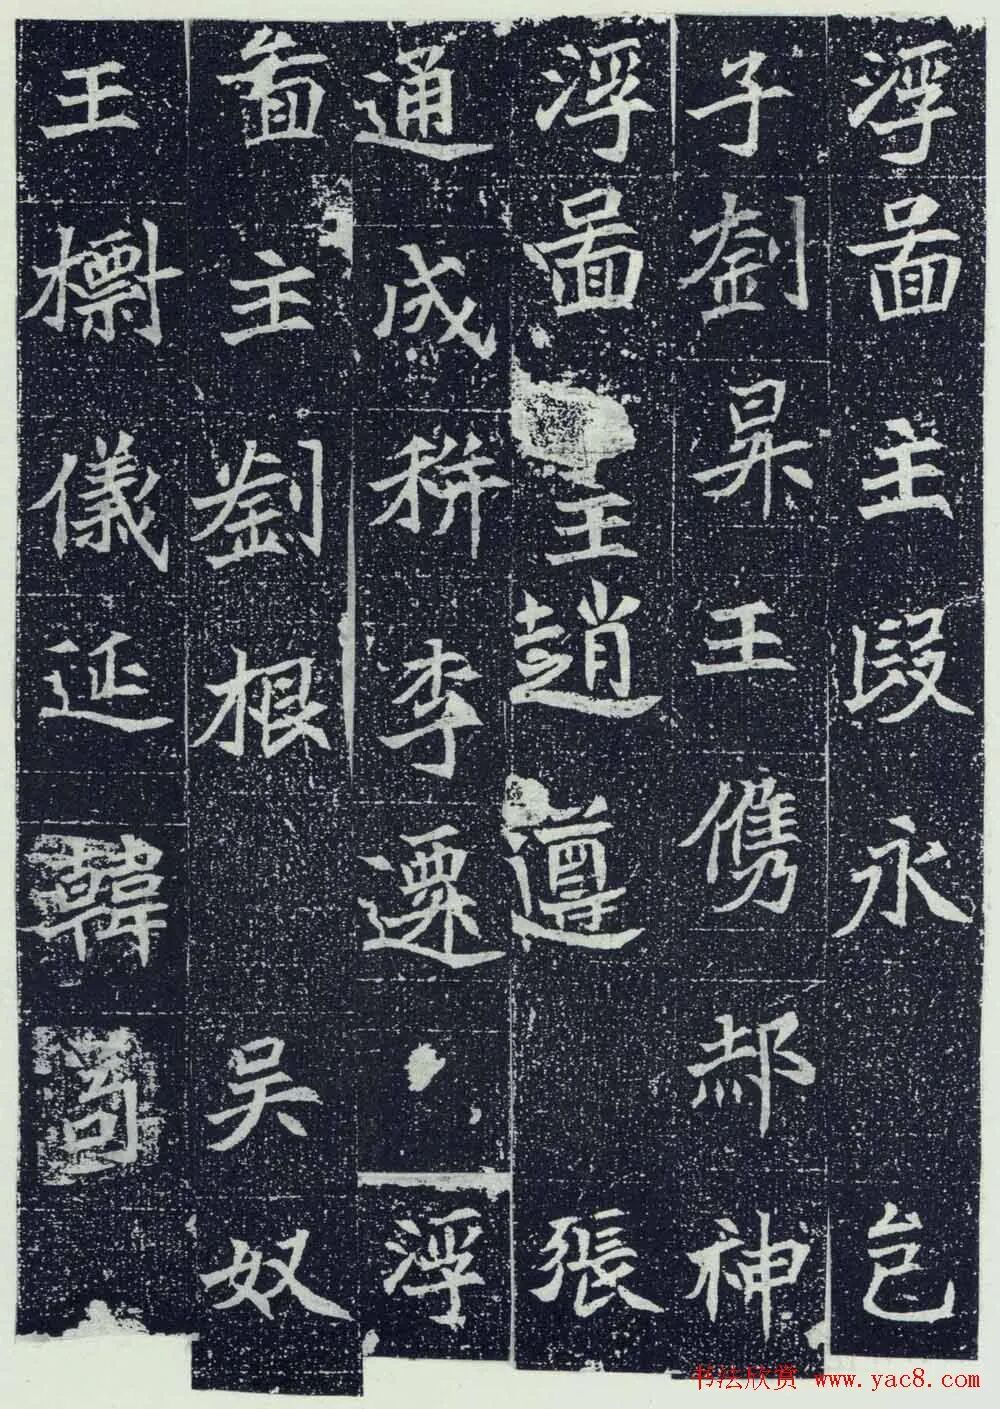 浮啚主段永邑
子劉昇王儁郝神
浮啚主趙遵張
通成秤李遷浮
啚主劉根吴奴
王標儀延韓
书法欣赏 www.yac8.com